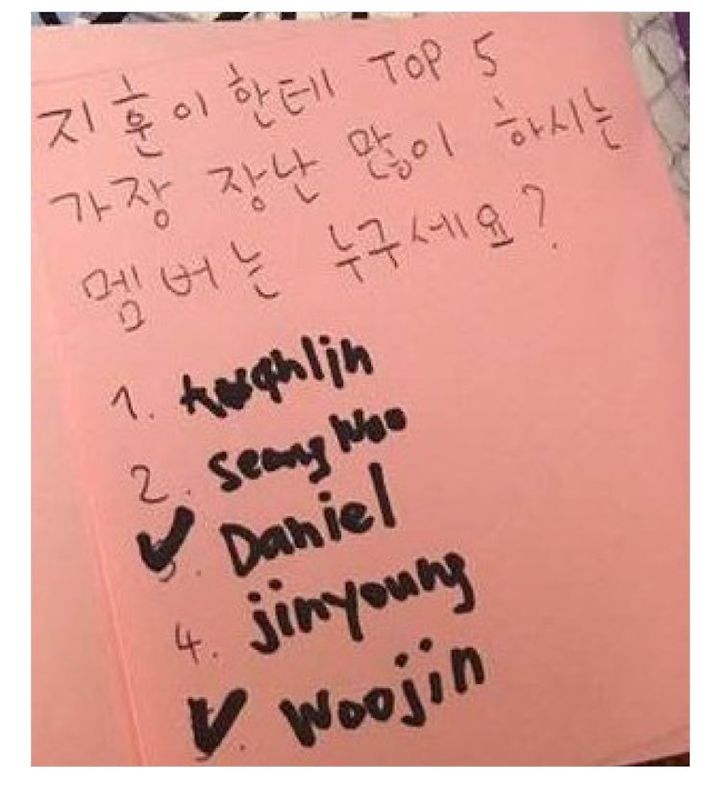 지훈이한테 TOP 5
가장 장난 많이 하시는
멤버는 누구세요?
1. kuanlin
2. seongwoo
3. Daniel
4. jinyoung
✔. Woojin